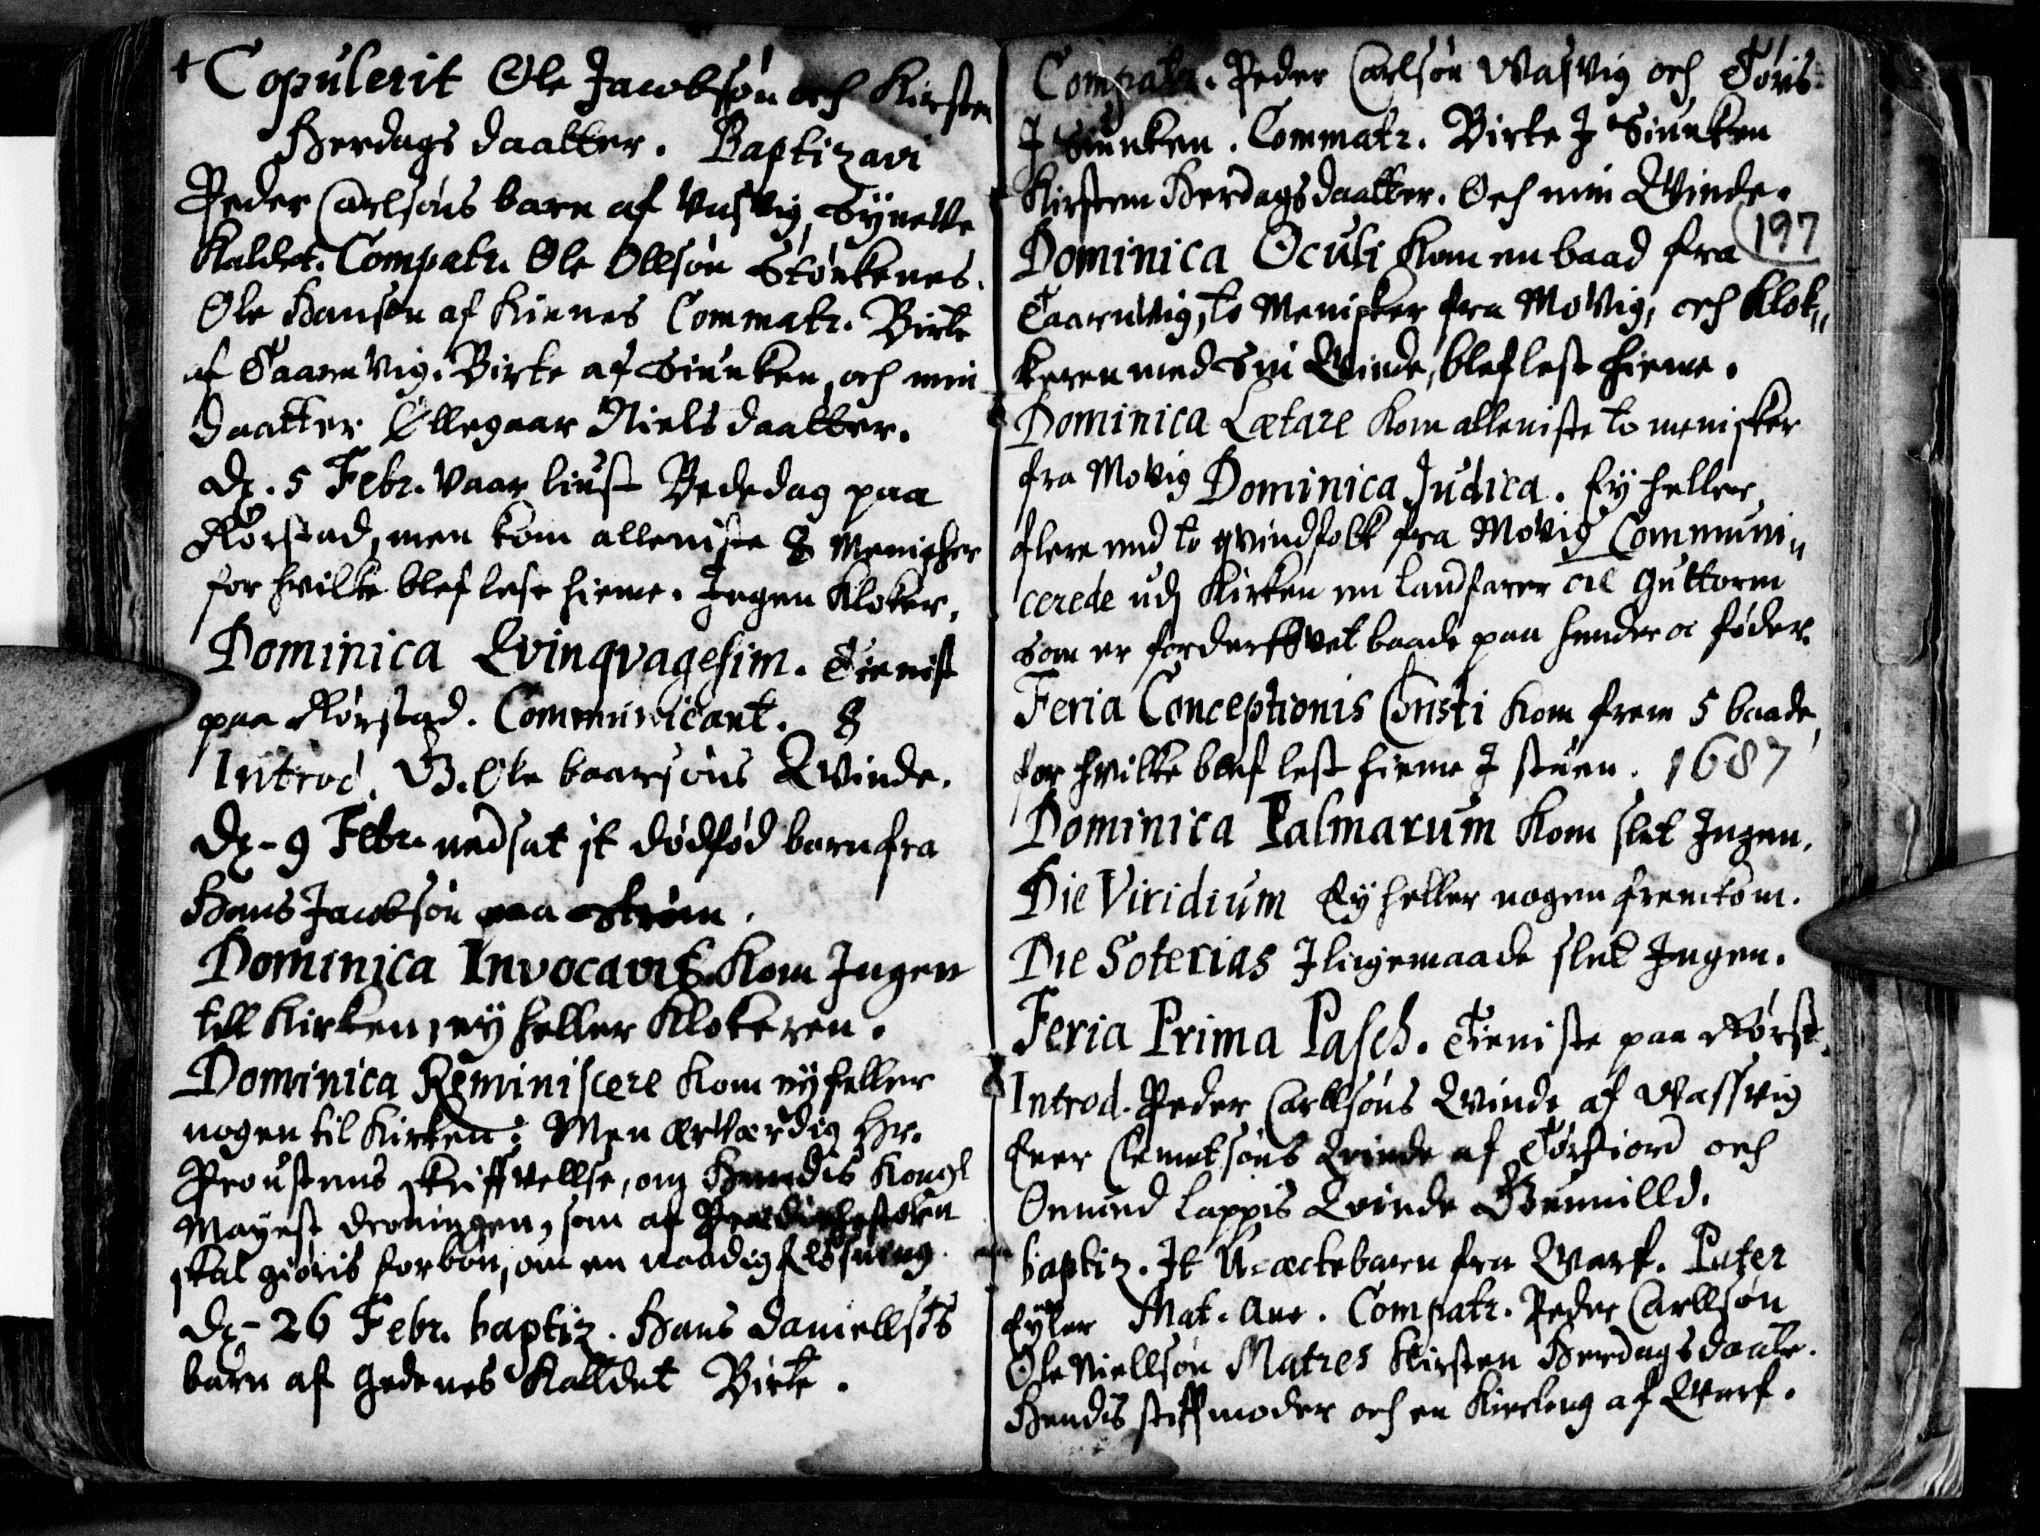 Copulerit Ole Jacobsøn och Kirsten
Herdags daatter. Baptizavi
Peder Carlsøns barn af Vasvig, Synevve
Kaldet. Compatr. Ole Ollsøn Storkenes.
Ole Hansøn af Kienes Commatr. Birte
af Taarnvig. Birte af Siunken, och min
daatter Ellegaar Niels daatter.
D. 5 Febr. Vaar liust Bededag paa
Rørstad, men kom alleniste 8 Menisker
for hvilke blef lest hieme. Ingen Kloker.
Dominica Qvinqvagesim. Tienist
paa Rørstad. Communicant. 8
Introd. Ole baarsøns Qvinde.
D. 9 Febr. nedsat it dødfød barn fra
Hans Jacobsøn paa Strøm.
Dominica Invocavit Kom Ingen
till Kirken, ey heller Klokeren.
Dominica Reminiscere Kom ey heller
nogen til Kirken: Men ærværdig Hr.
Proustens skriffvellse, om Hendis Kongl
Mayest dronningen, som af Prædichestolen
skal giøris forbøn, om en naadig forløsning.
D. 26 Febr. baptiz. Hans Daniellsøs
barn af Gedenes Kalldet Birte.
Compatr. Peder Carlsøn Vasvig och Toris
J Siunken. Commatr. Birte J Siunken
Kirsten Herdagsdaatter. Och min Qvinde.
197
Dominica Oculi Kom en baad fra
Taarnvig, to Menisker fra Movig, och Klok„
keren med sin Qvinde, blef lest hieme.
Dominica Lætare Kom alleniste to menisker
fra Movig Dominica Judica. Ey heller
flere end to qvindfolk fra Movig Communi„
cerede udj Kirken en landfarer al Guttorm
som er forderffvet baade paa hender oc føder.
Feria Conceptionis Christi Kom frem 5 baade,
for hvilke blef lest hieme J stuen. 1687
Dominica Palmarum Kom slet Ingen.
Die Viridium Ey heller nogen fremkom.
Die Soterias Iligemaade slet Ingen.
Feria Prima Pasch. Tieniste paa Rørst.
Introd. Peder Carllsøns Qvinde af Vassvig
Ener Clemetsøns Qvinde af Torfiord och
Onnund Lappis Qvinde Gunnilld.
baptiz. It U-æctebarn fra Qvarf. Pater
Eyler Mat. Ane. Compatr. Peder Carllsøn
Ole Niellsøn Matres Kirsten Herdagsdaatr.
Hendis stiffmoder och en Kierling af Qvarf.